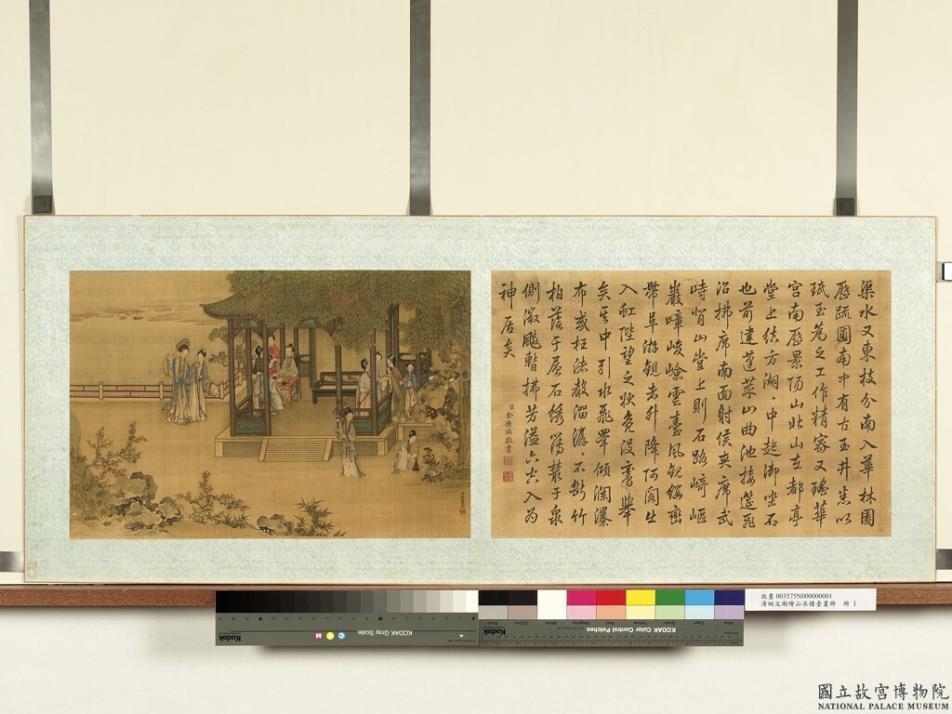 渠水又東枝分南入華林園
歷疏圃南中有古玉井悉以
珉玉為之工作精密又瑤華
宮南歷景陽山北山在都亭
堂上結方湖〻中起御坐石
也前建蓬萊山曲池接筵飛
沼拂席南面射侯夾席武
峙背山堂上則石路崎嶇
巖嶂峻嶮雲臺風觀纓巒
帶阜游覿者升降阿閣出
入虹陛望之狀鳧沒鸞舉
矣其中引水飛皋傾瀾瀑
布或枉渚聲溜潺〻不斷竹
柏蔭于層石繡薄叢于泉
側微飈暫拂芳溢六空入為
神居矣
敬書
故畫 003575N000000001
清姚文瀚繪山水樓臺畫冊 冊 1
Kodak
KODAK Gray Scale
C Y M
Kodak
KODAK Color Control Patches
國立故宮博物院
NATIONAL PALACE MUSEUM